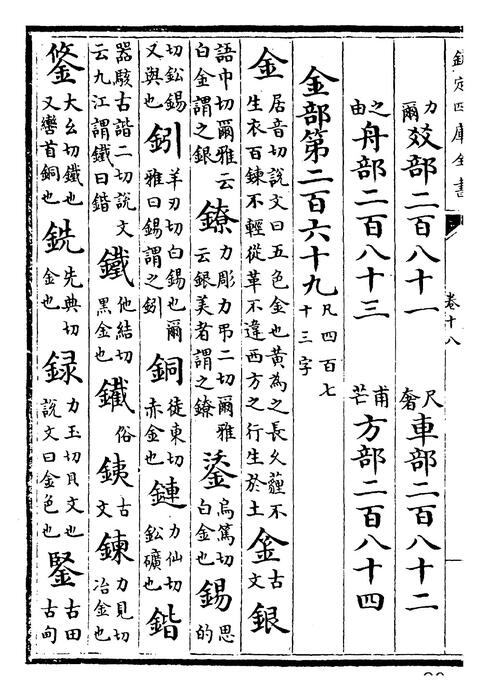 欽定四庫全書
卷十八
力爾叕部二百八十一 尺奢車部二百八十二
之由舟部二百八十三 甫芒方部二百八十四
金部第二百六十九 凡四百七十三字
金 居音切說文曰五色金也黃為之長久薶不生衣百鍊不輕從革不違西方之行生於土 𨤾 古文 銀
語巾切爾雅云白金謂之銀 鐐 力彫力弔二切爾雅云銀美者謂之鐐 鋈 烏篤切白金也 錫 思的
切鈆錫又與也 鈏 羊刃切白錫也爾雅曰錫謂之鈏 銅 徒東切赤金也 鏈 力仙切鈆礦也 鍇
器駭古諧二切說文云九江謂鐵曰鍇 鐵 他結切黑金也 鐡 俗 銕 古文 鍊 力見切冶金也
鋚 大幺切鐵也又轡首銅也 銑 先典切金也 録 力玉切貝文也說文曰金色也 鋻 古田古甸